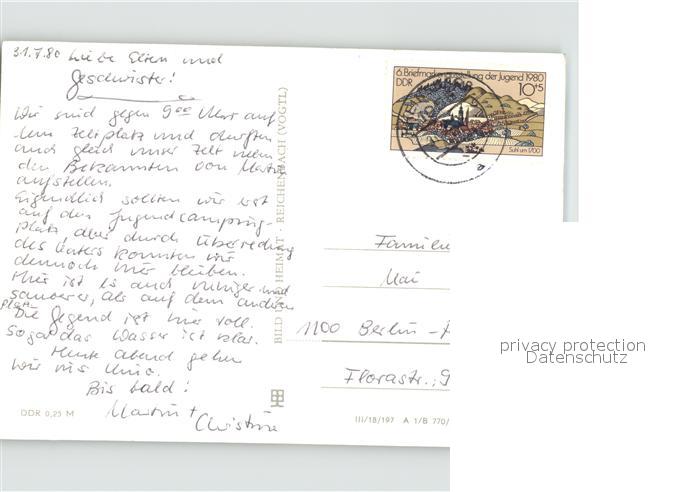 31.7.80 Liebe Eltern und
Geschwister!
Wir sind gegen 9⁰⁰ Uhr auf
dem Zeltplatz und durften
auch gleich unser Zelt neben
den Bekannten von Martin
aufstellen.
Eigendlich sollten wir erst
auf den Jugendcamping-
platz, aber durch Überredung
des Vaters konnten wir
dennoch hier bleiben.
Hier ist es auch ruhiger und
sauberer, als auf dem anderen
Platz.
Die Gegend ist hier toll.
Sogar das Wasser ist klar.
Heute abend gehen
wir ins Kino.
Bis bald!
Martin +
Christine
DDR 0,25 M
BILD UND HEIMAT · REICHENBACH (VOGTL)
6. Briefmarkenausstellung der Jugend 1980
DDR
10+5
Suhl um 1700
a
Familie
Mai
1100 Berlin -
Florastr., 9
III/18/197 A 1/B 770/
privacy protection
Datenschutz